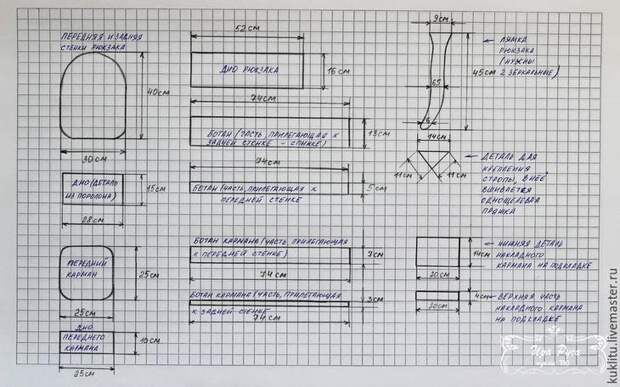 ПЕРЕДНЯЯ И ЗАДНЯЯ
СТЕНКИ РЮКЗАКА
40см
30 см
52 см
ДНО РЮКЗАКА
15см
74см
БОТАН (ЧАСТЬ ПРИЛЕГАЮЩАЯ К
ЗАДНЕЙ СТЕНКЕ - СПИНКЕ)
13см
74см
БОТАН (ЧАСТЬ, ПРИЛЕГАЮЩАЯ К
ПЕРЕДНЕЙ СТЕНКЕ
5см
9см
ЛЯМКА
РЮКЗАКА
(НУЖНЫ
2 ЗЕРКАЛЬНЫЕ)
45см
65
6
14см
11см
11см
ДЕТАЛЬ ДЛЯ
КРЕПЛЕНИЯ
СТРОПЫ, В НЕЁ
ВШИВАЕТСЯ
ОДНОЩЕЛЕВАЯ
ПРЯЖКА
ДНО (ДЕТАЛЬ
ИЗ ПОРОЛОНА)
15см
28 см
ПЕРЕДНИЙ
КАРМАН
25см
25см
БОТАН КАРМАНА (ЧАСТЬ, ПРИЛЕГАЮЩАЯ
К ПЕРЕДНЕЙ СТЕНКЕ)
7см
74см
БОТАН КАРМАНА (ЧАСТЬ, ПРИЛЕГАЮЩАЯ
К ЗАДНЕЙ СТЕНКЕ
3см
74см
НИЖНЯЯ ДЕТАЛЬ
НАКЛАДНОГО
КАРМАНА НА ПОДКЛАДКЕ
14см
20см
ВЕРХНЯЯ ЧАСТЬ
НАКЛАДНОГО КАРМАНА
НА ПОДКЛАДКЕ
4см
20см
ДНО
ПЕРЕДНЕГО
КАРМАНА
25см
kuklitu.livemaster.ru